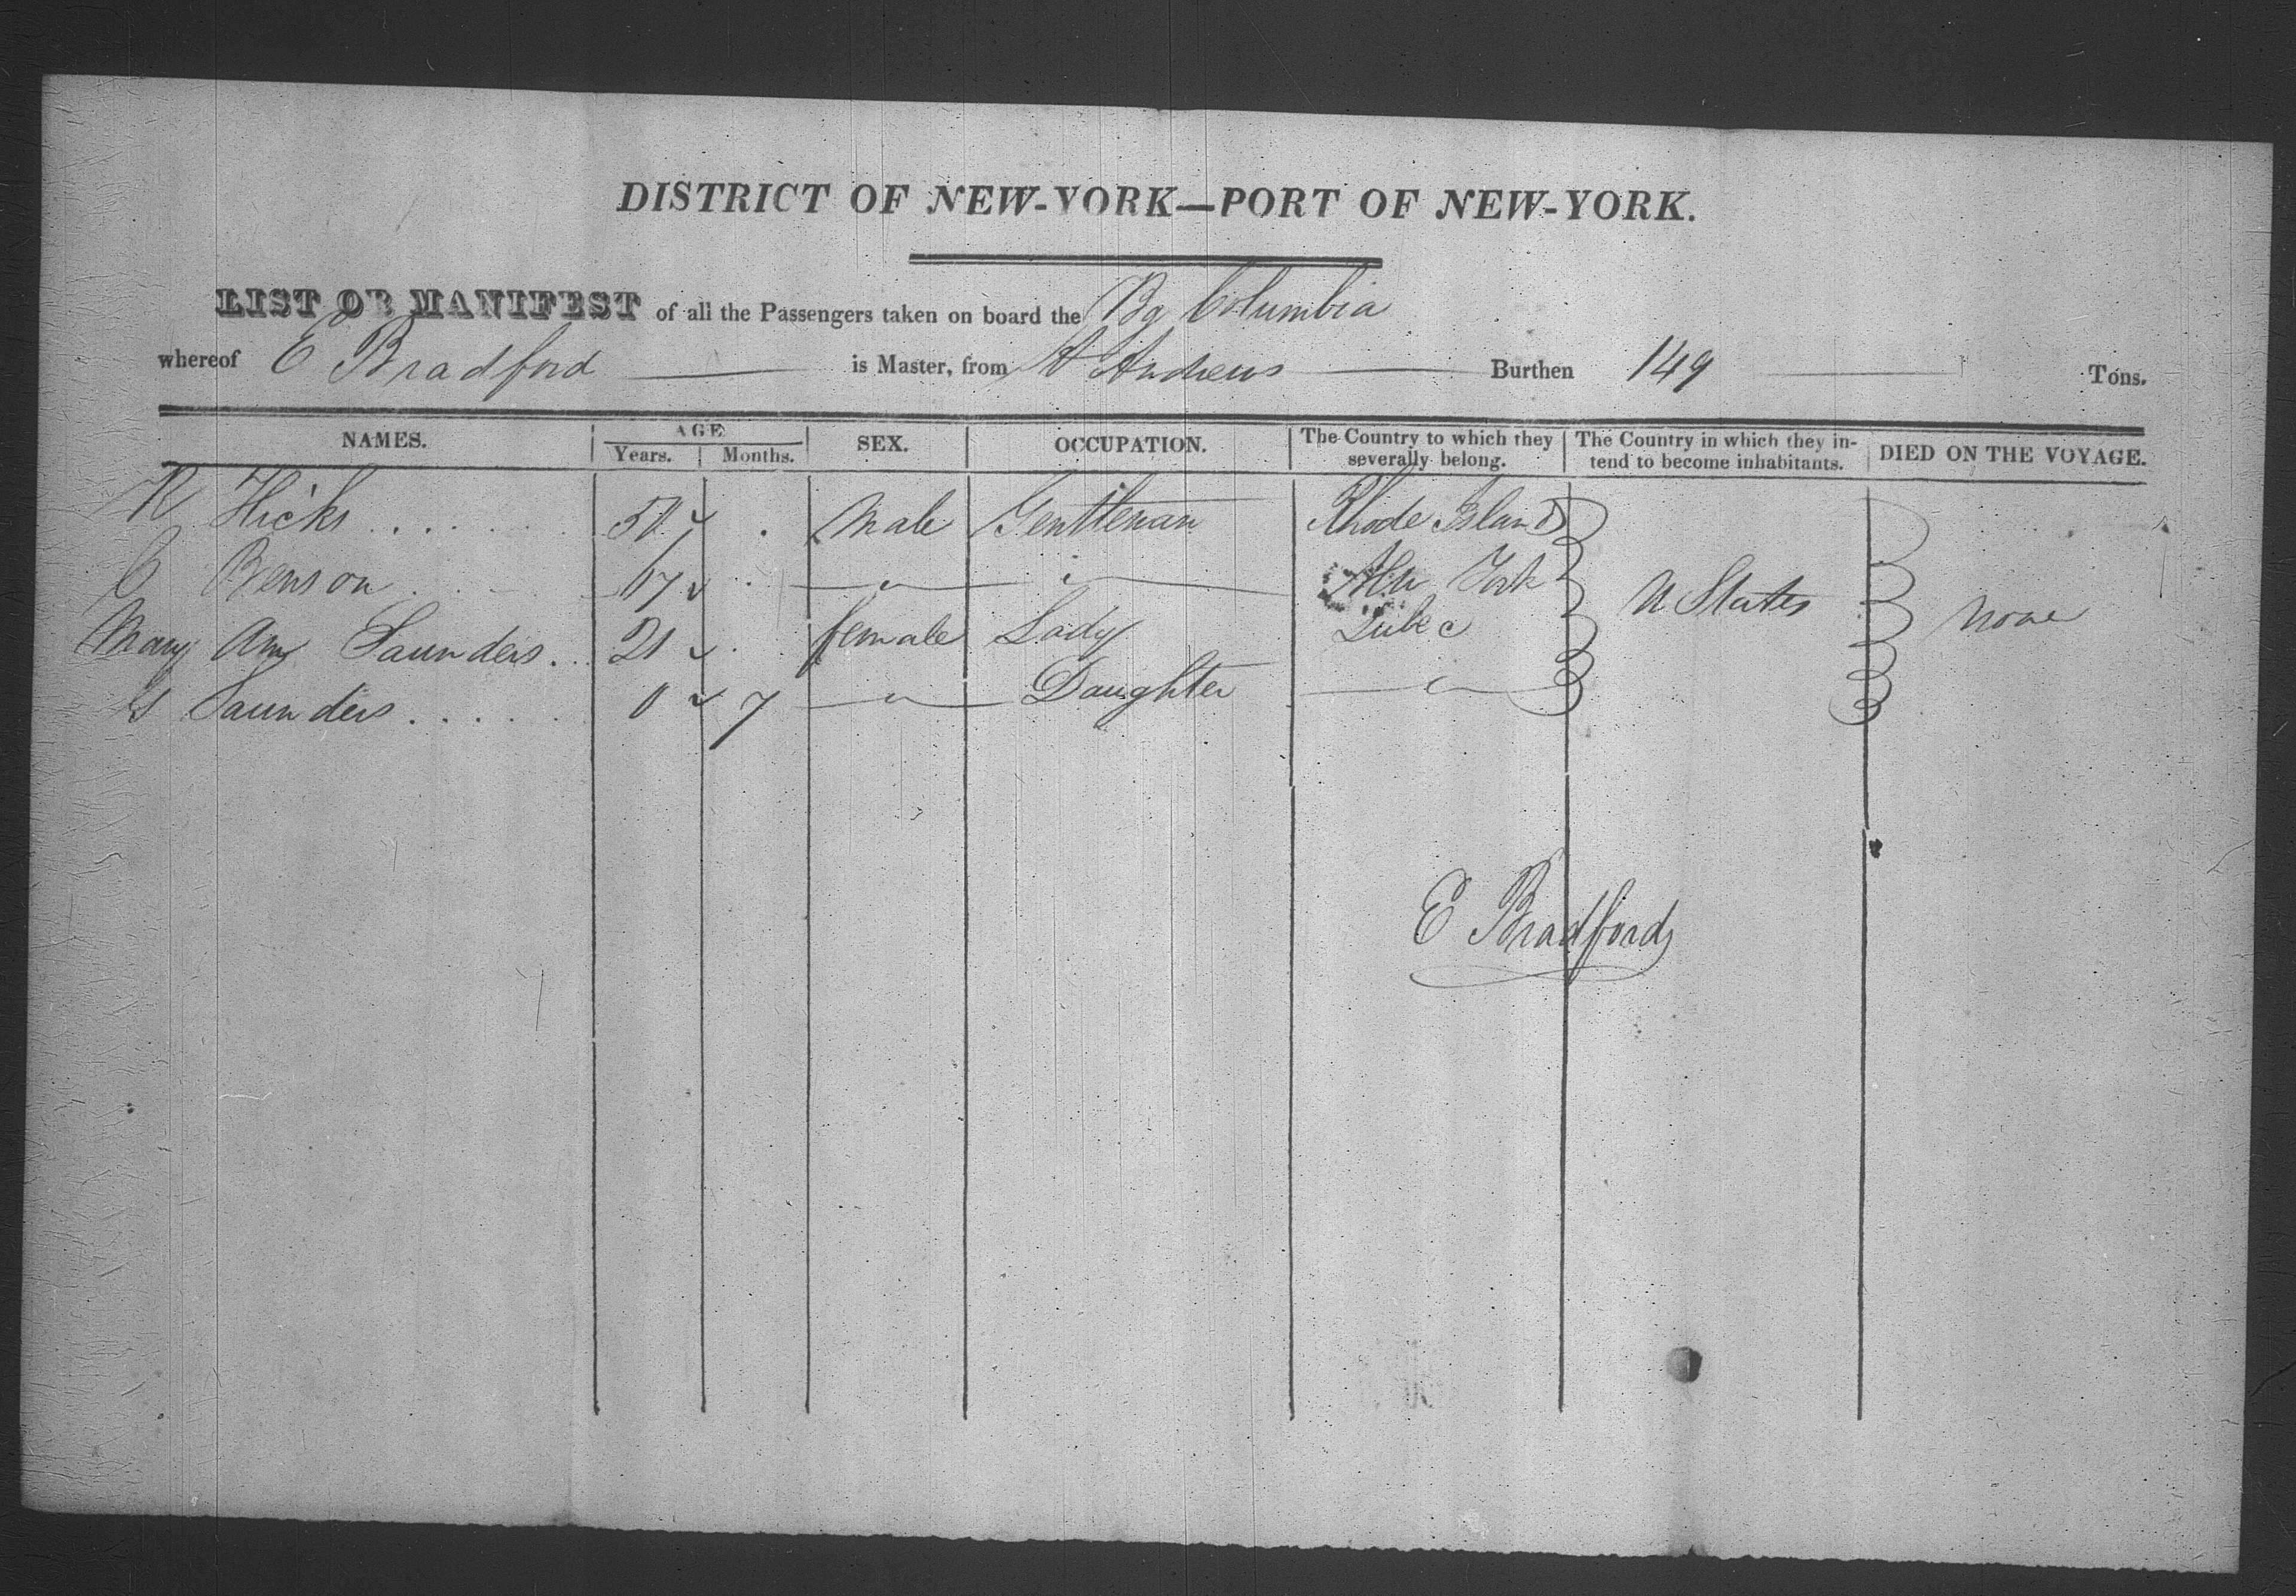 DISTRICT OF NEW-YORK—PORT OF NEW-YORK.
LIST OR MANIFEST of all the Passengers taken on board the Bg Columbia
whereof E Bradford is Master, from St Andrews Burthen 149 Tons.
NAMES. AGE Years. Months. SEX. OCCUPATION. The Country to which they severally belong. The Country in which they intend to become inhabitants. DIED ON THE VOYAGE.
R Hicks . . . . . . Male Gentleman Rhode Island
C Benson . . . " " New York
U States None
Mary Ann Saunders . . 21 female Lady Lubec
Saunders . . . . . . 0 7 " Daughter "
E Bradford